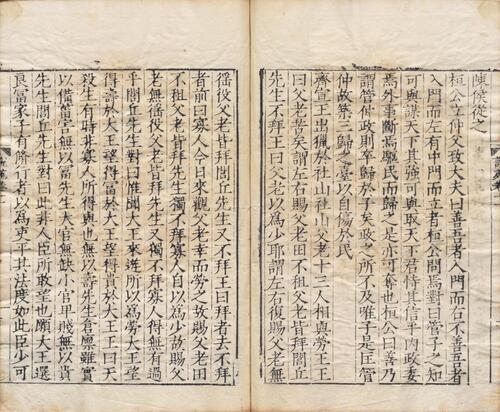 陳侯從之
桓公立仲父致大夫曰善吾者入門而右不善吾者
入門而左有中門而立者桓公問焉對曰管子之知
可與謀天下其強可與取天下君恃其信乎內政委
焉外事斷焉驅民而歸之是亦可奪也桓公曰善乃
謂管仲政則卒歸於子矣政之所不及唯子是匡管
仲故築三歸之臺以自傷於民
齊宣王出獵於社山社山父老十三人相與勞王王
曰父老苦矣謂左右賜父老田不租父老皆拜閭丘
先生不拜王曰父老以為少耶謂左右復賜父老無
徭役父老皆拜閭丘先生又不拜王曰拜者去不拜
者前曰寡人今日來觀父老幸而勞之故賜父老田
不租父老皆拜先生獨不拜寡人自以為少故賜父
老無徭役父老皆拜先生又獨不拜寡人得無有過
乎閭丘先生對曰惟聞大王來遊所以為勞大王望
得壽於大王望得富於大王望得貴於大王王曰天
殺生有時非寡人所得與也無以壽先生倉廩雖實
以備菑害無以富先生大官無缺小官卑賤無以貴
先生閭丘先生對曰此非人臣所敢望也願大王選
良富家子有脩行者以為吏平其法度如此臣少可